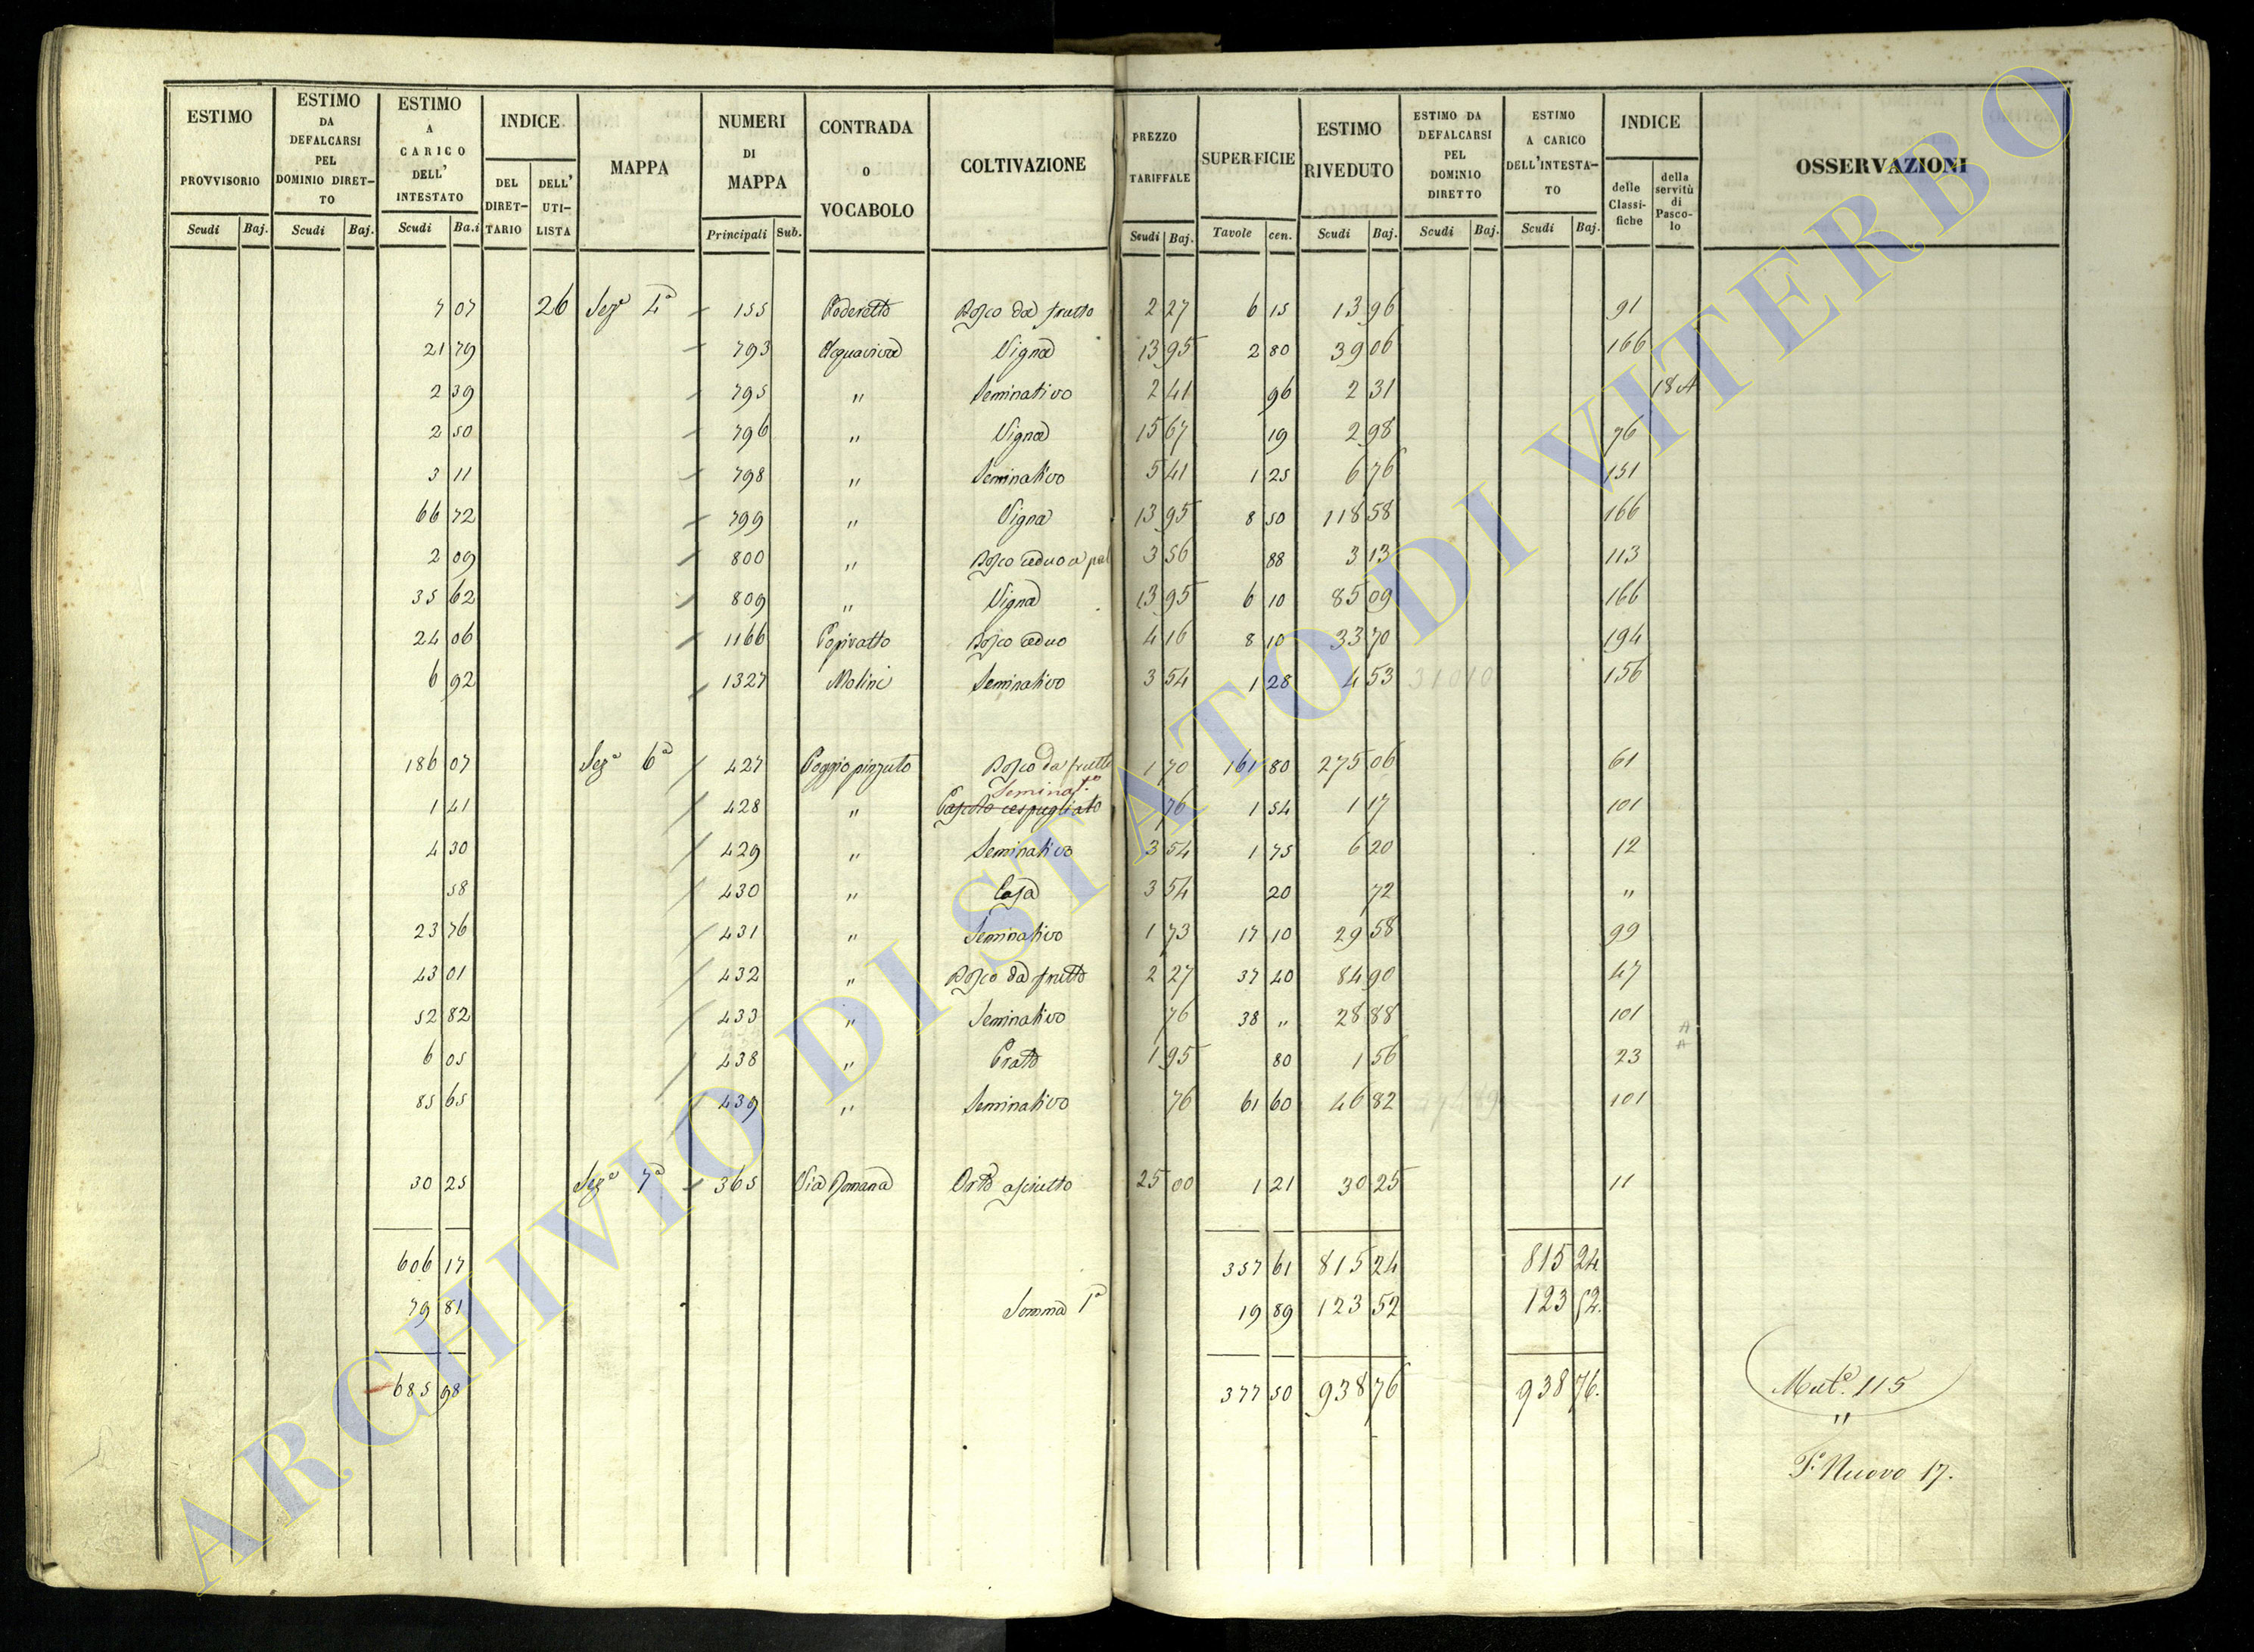 ESTIMO PROVVISORIO
Scudi Baj.
ESTIMO DA DEFALCARSI PEL DOMINIO DIRET-TO
Scudi Baj.
ESTIMO A CARICO DELL' INTESTATO
Scudi Ba.i
INDICE
DEL DIRET-TARIO
DELL' UTI-LISTA
MAPPA
NUMERI DI MAPPA
Principali Sub.
CONTRADA O VOCABOLO
COLTIVAZIONE
PREZZO TARIFFALE
Scudi Baj.
SUPERFICIE
Tavole cen.
ESTIMO RIVEDUTO
Scudi Baj.
ESTIMO DA DEFALCARSI PEL DOMINIO DIRETTO
Scudi Baj.
ESTIMO A CARICO DELL'INTESTA-TO
Scudi Baj.
INDICE
delle Classi-fiche
della servitù di Pasco-lo
OSSERVAZIONI
7 07 26 Sez.e 4a 155 Poderetto Bosco da frutto 2 27 6 15 13 96 91
21 79 793 Acquaviva Vigna 13 95 2 80 39 06 166
2 39 795 " Seminativo 2 41 96 2 31 18 A
2 50 796 " Vigna 15 67 19 2 98 76
3 11 798 " Seminativo 5 41 1 25 6 76 151
66 72 799 " Vigna 13 95 8 50 118 58 166
2 09 800 " Bosco ceduo a pal 3 56 88 3 13 113
35 62 809 " Vigna 13 95 6 10 85 09 166
24 06 1166 Bosco ceduo 4 16 8 10 33 70 194
6 92 1327 Molini Seminativo 3 54 1 28 4 53 310 10 156
186 07 Sez.e 6a 427 Poggio pizzuto Bosco da frutto 1 70 161 80 275 06 61
Seminat.to
1 41 428 " Pascolo cespugliato 76 1 54 1 17 101
4 30 429 " Seminativo 3 54 1 75 6 20 12
58 430 " Casa 3 54 20 72 "
23 76 431 " Seminativo 1 73 17 10 29 58 99
43 01 432 " Bosco da frutto 2 27 37 40 84 90 47
52 82 433 " Seminativo 76 38 " 28 88 101
A
A
6 05 438 " Prato 1 95 80 1 56 23
85 65 439 " Seminativo 76 61 60 46 82 101
30 25 Sez.e 7a 365 Via Romana Orto asciutto 25 00 1 21 30 25 11
606 17 357 61 815 24 815 24
79 81 Somma 1a 19 89 123 52 123 52.
685 98 377 50 938 76 938 76.
Mut.e 115
"
F. Nuovo 17.
ARCHIVIO DI STATO DI VITERBO